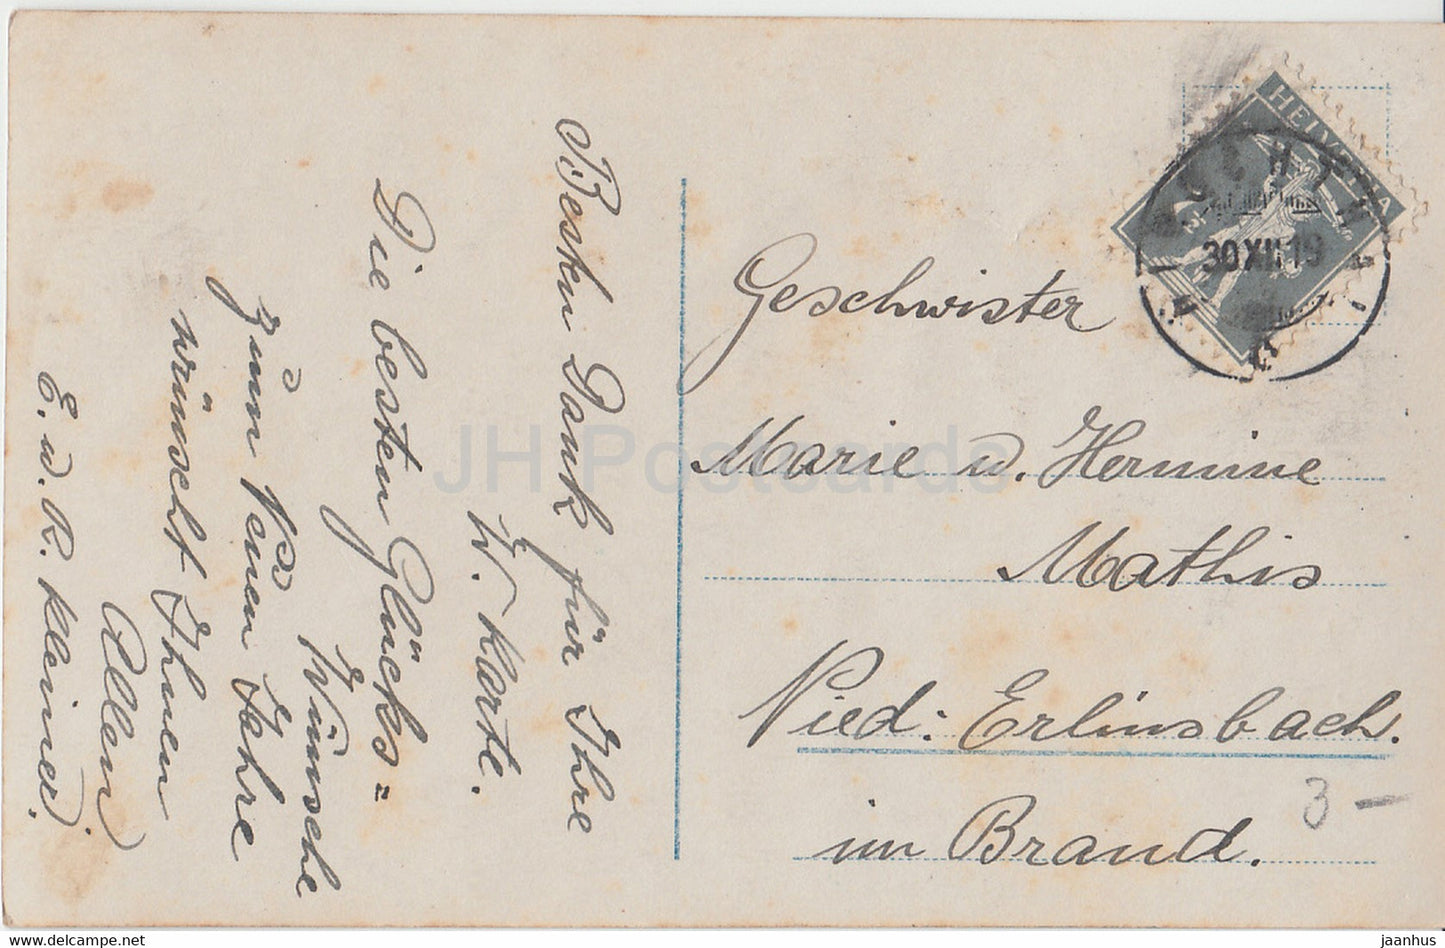 Besten Dank für Ihre
W. Karte.
Die besten Glücks=
Wünsche
zum Neuen Jahre
wünscht Ihnen
Allen
E. u. R. Kleiner.
HELVETIA
30 XII 19
Geschwister
Marie u. Hermine
Mathis
Nied: Erlinsbach.
im Brand.
3 —
JH Postcards
https://www.hippostcard.com/store/jaanhus
jaanhus